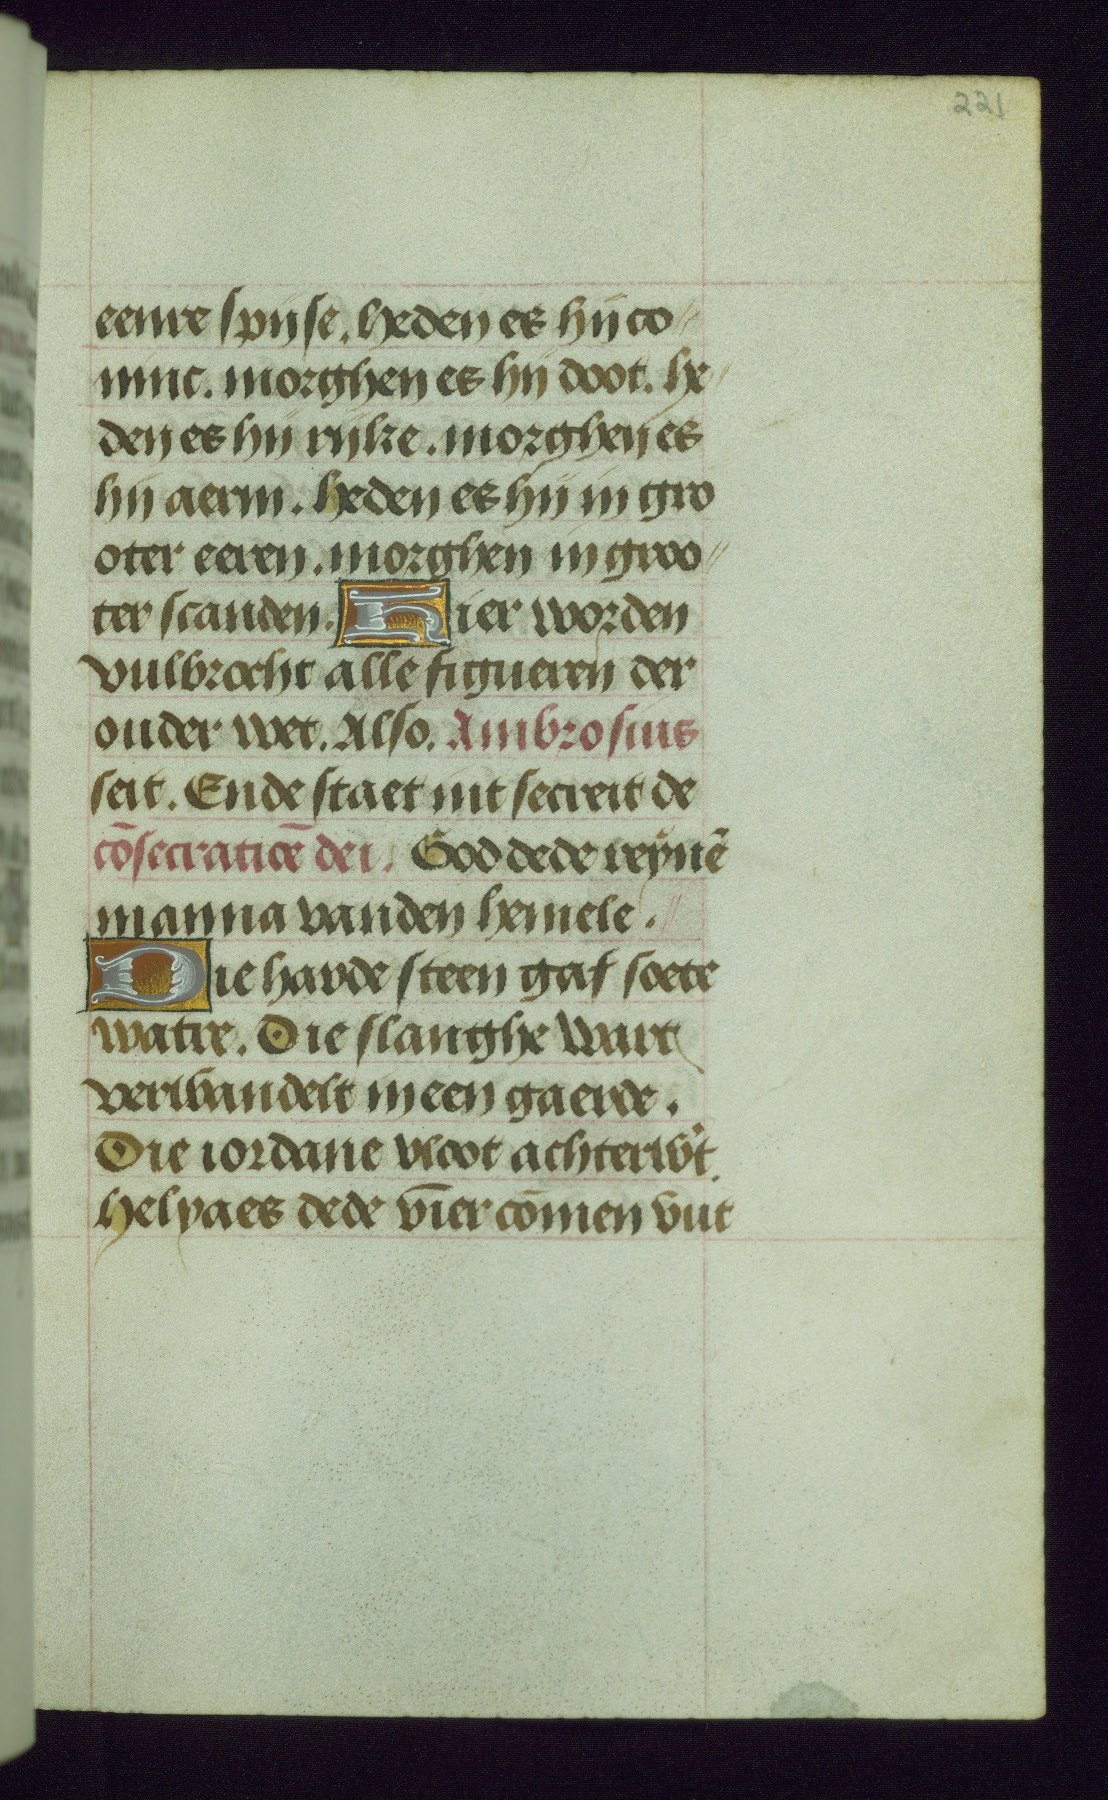 221
eenre spijse. heden es hij co〃
ninc. morghen es hij doot. he〃
den es hij rijke. morghen es
hij aerm. heden es hij in gro
oter eeren. morghen in groo〃
ter scanden. Hier worden
vulbrocht alle figueren der
ouder wet. Also. Ambrosius
seit. Ende staet int secreit de
cōsecratiōe dei. God dede reynē
manna vanden hemele.
Die harde steen gaf soete
watre. Die slanghe wart
verwandelt in een gaerde.
Die iordane vloot achterwt.
Helyaes dede vier comen vut